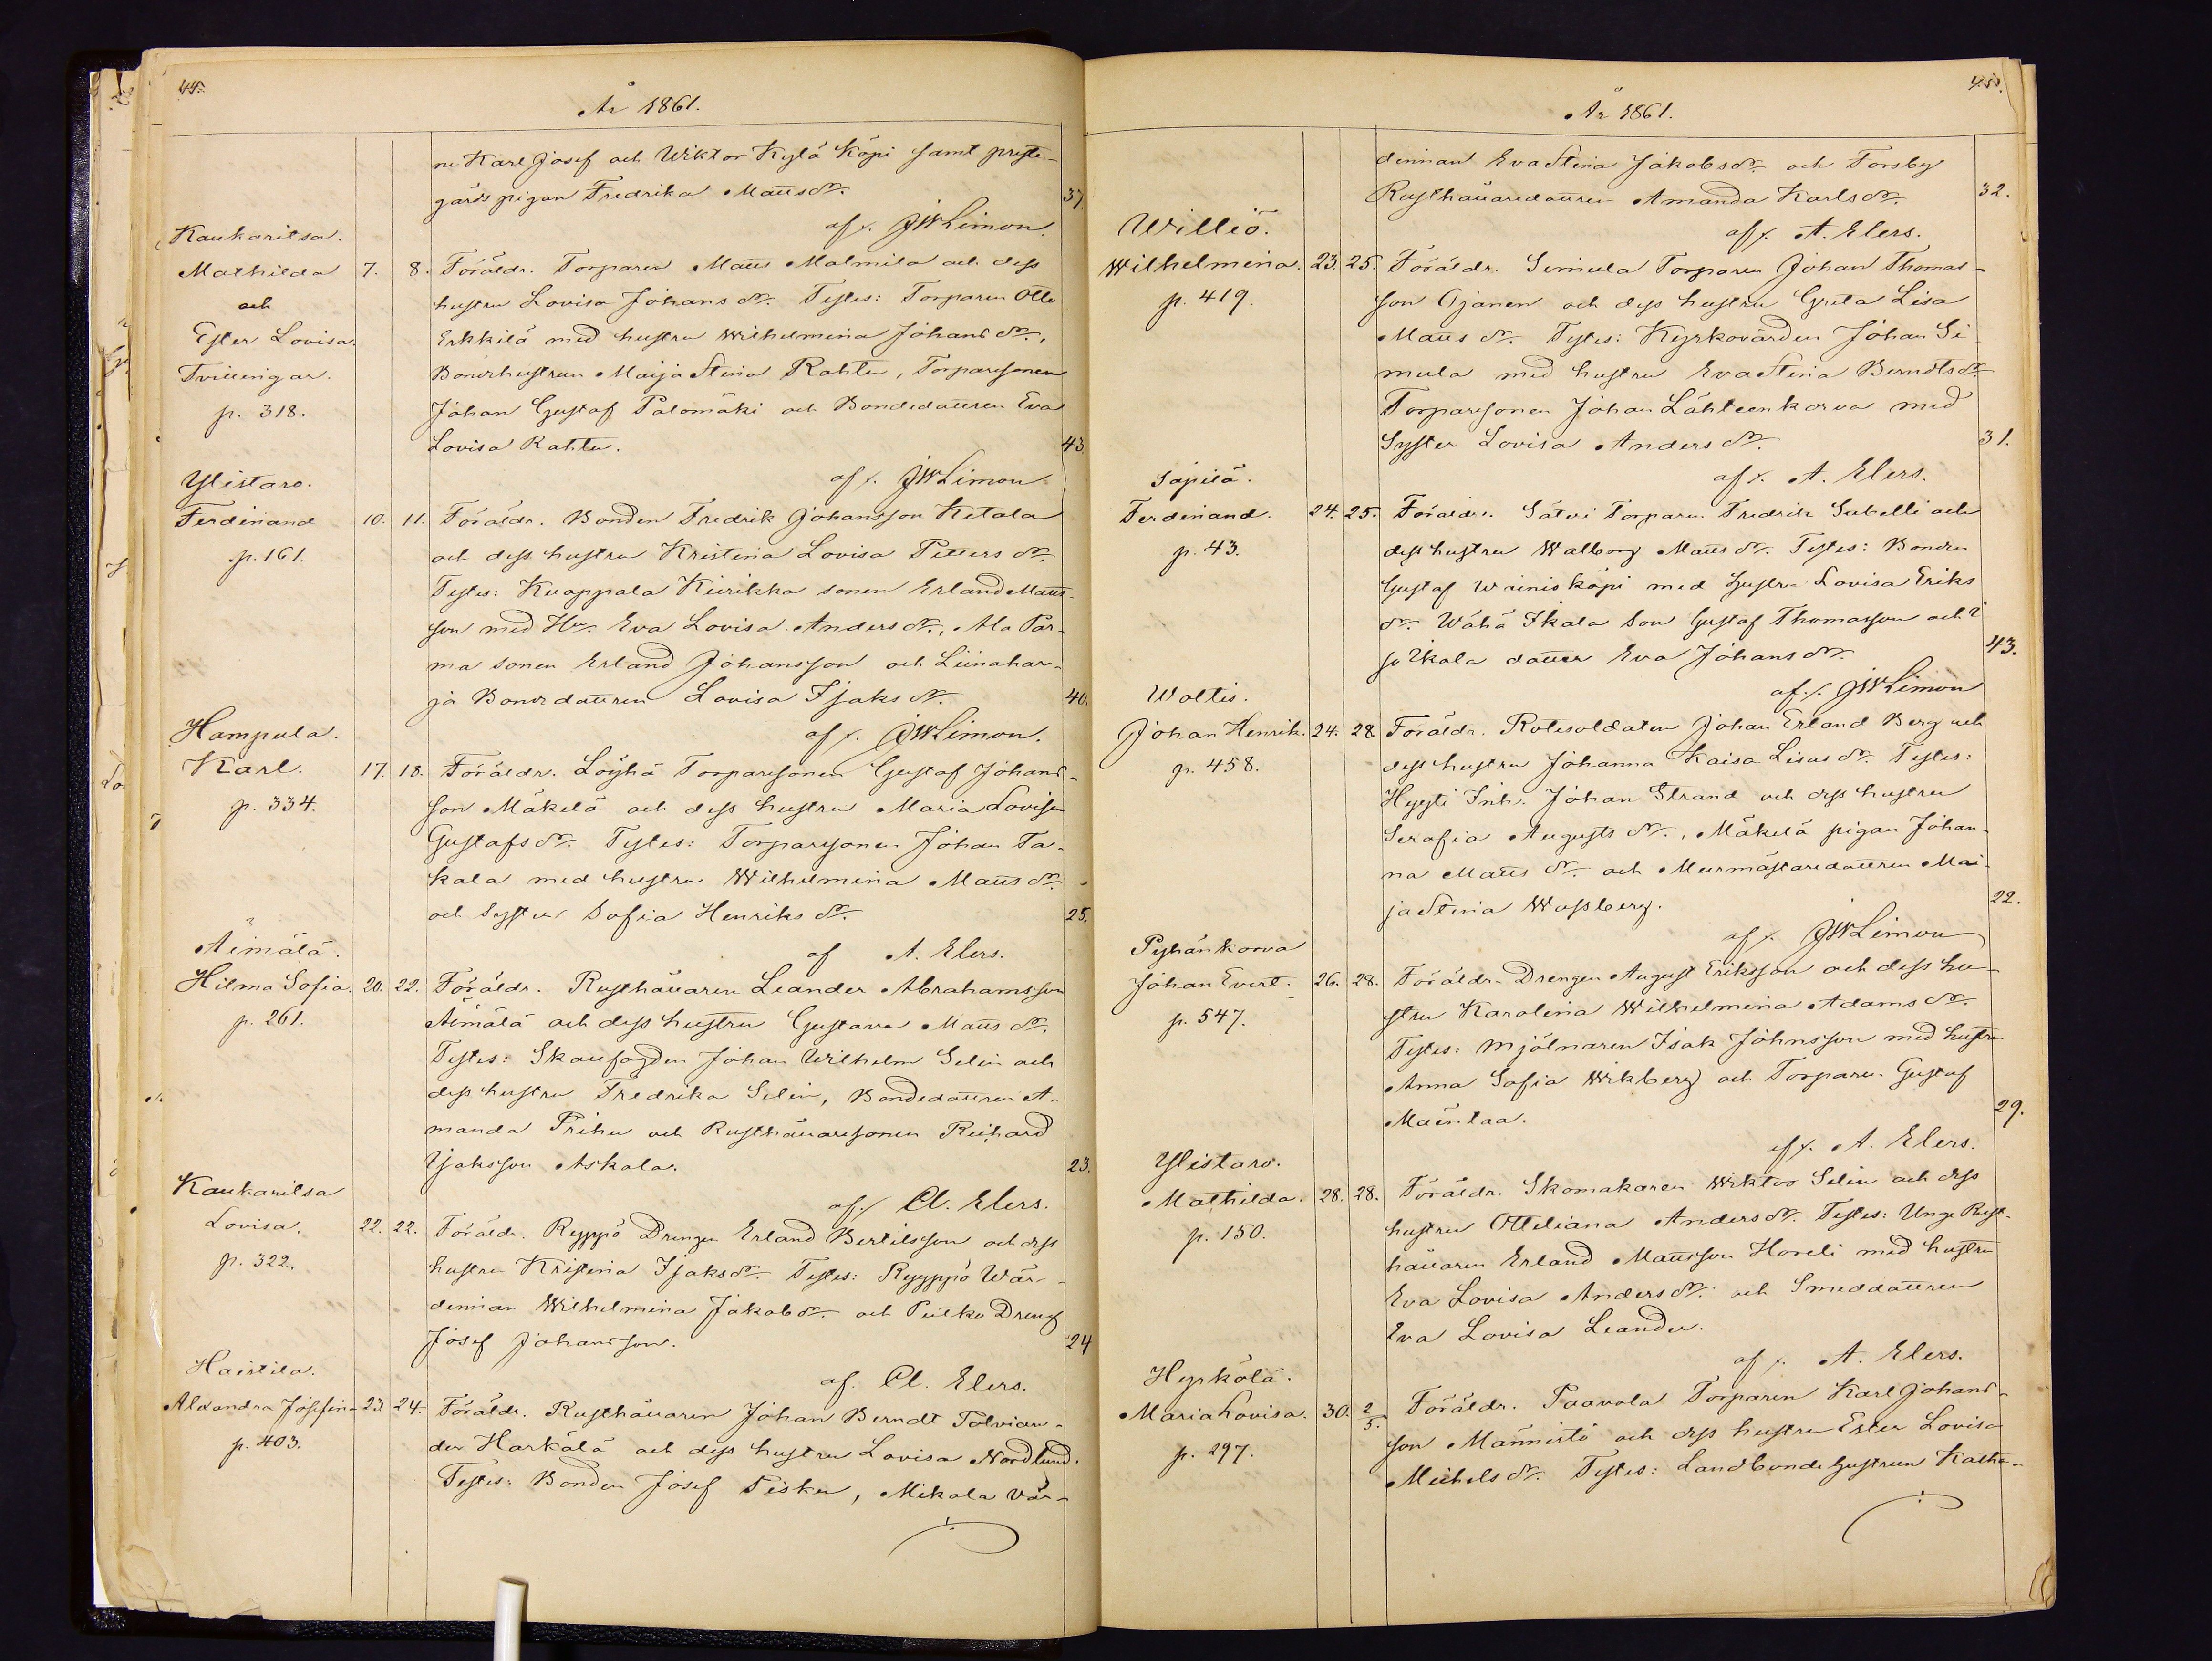 44.
År 1861.
ne Karl Josef och Wiktor Kylä Köpi samt preste-
gårds pigan Fredrika Matts dr.
37.
af J W Limon.
Kaukaritsa.
Mathilda 7. 8. Föräldr. Torparen Matts Malmila och dess
och hustru Lovisa Johans dr. Testes: Torparen Otto
Ester Lovisa. Erkkilä med hustru Wilhelmina Johans dr.,
Tvillingar. Bondhustrun Maija Stina Rahtu, Torparesonen
p. 318. Johan Gustaf Palomäki och Bondedottren Eva
Lovisa Rahtu. 43.
af J W Limon.
Ylistaro.
Ferdinand 10. 11. Föräldr. Bonden Fredrik Johansson Ketala
p. 161. och dess hustru Kristina Lovisa Petters dr.
Testes: Knappala Kiirikka sonen Erland Matts-
son med Hu. Eva Lovisa Anders dr., Ala Par-
ma sonen Erland Johansson och Liinahar-
ja Bondedottren Lovisa Isaks dr. 40.
af J W Limon.
Hampula.
Karl. 17. 18. Föräldr. Löyhä Torparesonen Gustaf Johans-
p. 334. son Mäkelä och dess hustru Maria Lovisa
Gustafs dr. Testes: Torparesonen Johan Ta-
kala med hustru Wilhelmina Matts dr.
och Syster Sofia Henriks dr. 25.
af A. Elers.
Äimälä.
Hilma Sofia. 20. 22. Föräldr. Rusthållaren Leander Abrahamsson
p. 261. Äimälä och dess hustru Gustava Matts dr.
Testes: Skoufogden Johan Wilhelm Selin och
dess hustru Fredrika Selin, Bondedottren A-
manda Prihu och Rusthållaresonen Richard
Isaksson Askala. 23.
af A. Elers.
Kaukaritsa
Lovisa. 22. 22. Föräldr. Ryyppö Drengen Erland Bertilsson och dess
p. 322. hustru Kristina Isaks dr. Testes: Ryyppö Wär-
dinnan Wilhelmina Jakobs dr. och Putko Dreng
Josef Johansson. 24
af. A. Elers.
Haistila.
Alexandra Josefina 23. 24. Föräldr. Rusthållaren Johan Berndt Polvian-
p. 403. der Harkälä och dess hustru Lovisa Nordlund.
Testes: Bonden Josef Pisku, Mikola Vär-
45.
År 1861.
dinnan Eva Stina Jakobs dr. och Forsby
Rusthållaredottren Amanda Karls dr. 32.
af A. Elers.
Williö.
Wilhelmina. 23. 25. Föräldr. Simula Torparen Johan Thomas-
p. 419. son Ojanen och dess hustru Greta Lisa
Matts dr. Testes: Kyrkovärden Johan Si-
mula med hustru Eva Stina Berndts dr.
Torparesonen Johan Lähteenkorva med
Syster Lovisa Anders dr. 31.
af A. Elers.
Sapilä.
Ferdinand. 24. 25. Föräldr. Säteri Torparen Fredrik Subelli och
p. 43. dess hustru Walborg Matts dr. Testes: Bonden
Gustaf Wainisköpi med Hustru Lovisa Eriks
dr. Wähä Ikala Son Gustaf Thomasson och I
so Ikala dotter Eva Johans dr. 43.
af J W Limon
Woltis.
Johan Henrik. 24. 28 Föräldr. Rotesoldaten Johan Erland Berg och
p. 458. dess hustru Johanna Kaisa Lisas dr. Testes:
Hyysti Inh. Johan Strand och dess hustru
Serafia Augusts dr., Mäkelä pigan Johan-
na Matts dr. och Murmästaredottren Mai-
ja Stina Wassberg. 22.
af J W Limon
Pyhänkorva
Johan Evert. 26. 28. Föräldr. Drengen August Eriksson och dess hu-
p. 547. stru Karolina Wilhelmina Adams dr.
Testes: Mjölnaren Isak Johnsson med hustru
Anna Sofia Wikberg och Torparen Gustaf
Mäentaa. 29.
af A. Elers.
Ylistaro.
Mathilda. 28. 28. Föräldr. Skomakaren Wiktor Selin och dess
p. 150. hustru Otteliana Anders dr. Testes: Unge Rust-
hållaren Erland Mattsson Horeli med hustru
Eva Lovisa Anders dr. och Smeddottren
Eva Lovisa Leander.
af A. Elers.
Hyrkölä.
Maria Lovisa. 30. 2/5. Föräldr. Paavola Torparen Karl Johans-
p. 297. son Männistö och dess hustru Ester Lovisa
Michels dr. Testes: Landbonde hustrun Katha-